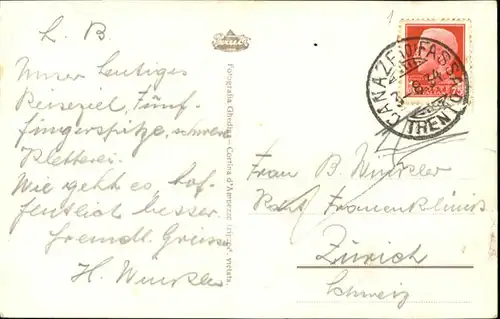 L. B.
Unser heutiges
Reiseziel, Fünf-
fingerspitze, schwere
Kletterei.
Wie geht es, hof-
fentlich besser.
Freundl. Grüsse
H. Winkler
Fotografia Ghedina - Cortina d'Ampezzo
CANAZEI D. FASSA
TRENTO
Frau B. Winkler
Frauenklinik
Zürich
Schweiz